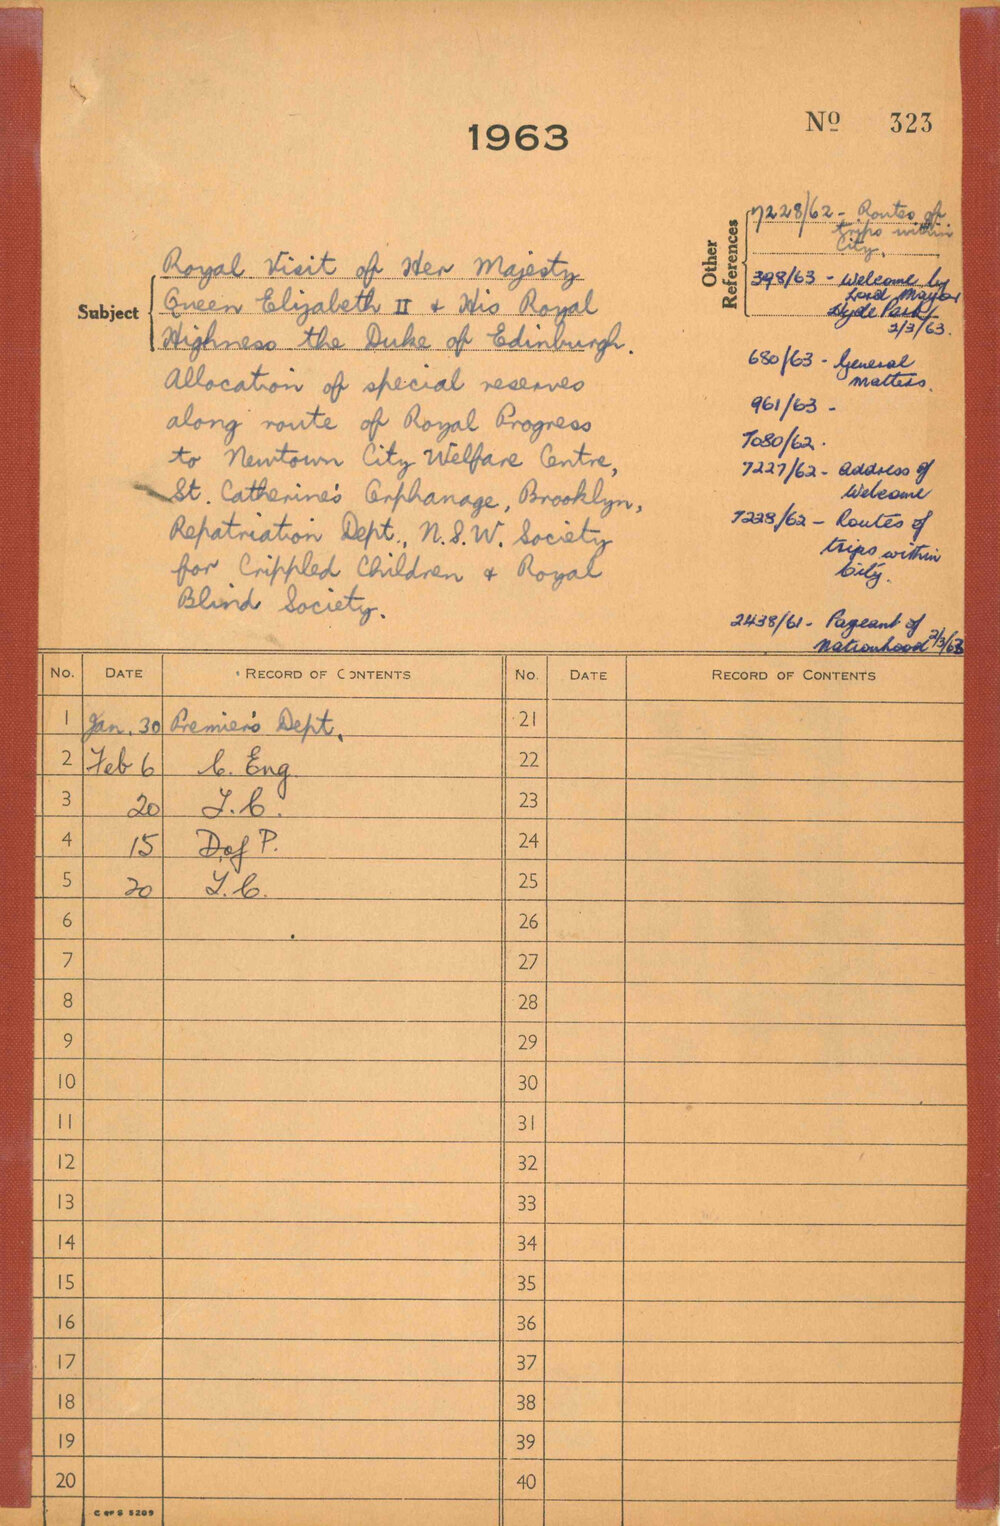 1963
No 323
Subject
Royal Visit of Her Majesty
Queen Elizabeth II & His Royal
Highness the Duke of Edinburgh.
Allocation of special reserves
along route of Royal Progress
to Newtown City Welfare Centre,
St. Catherine's Orphanage, Brooklyn,
Repatriation Dept., N.S.W. Society
for Crippled Children & Royal
Blind Society.
Other
References
7228/62 - Routes of
trips within
City.
398/63 - Welcome by
Lord Mayor
Hyde Park
2/3/63.
680/63 - General
Matters.
961/63 -
7080/62.
7227/62 - Address of
Welcome
7228/62 - Routes of
trips within
City.
2438/61 - Pageant of
Nationhood 2/3/63
No. DATE RECORD OF CONTENTS No. DATE RECORD OF CONTENTS
1 Jan. 30 Premier's Dept. 21
2 Feb 6 C. Eng. 22
3 20 T.C. 23
4 15 D of P. 24
5 20 T.C. 25
6 26
7 27
8 28
9 29
10 30
11 31
12 32
13 33
14 34
15 35
16 36
17 37
18 38
19 39
20 40
C OF S 5209